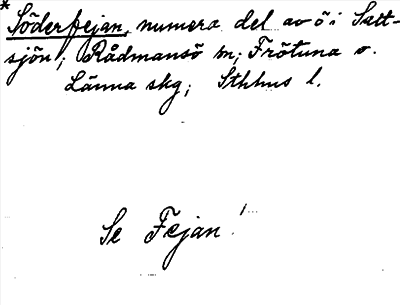 *Söderfejan, numera del av ö i Salt-
sjön; Rådmansö sn; Frötuna o.
Länna skg; Sthlms l.
Se Fejan!